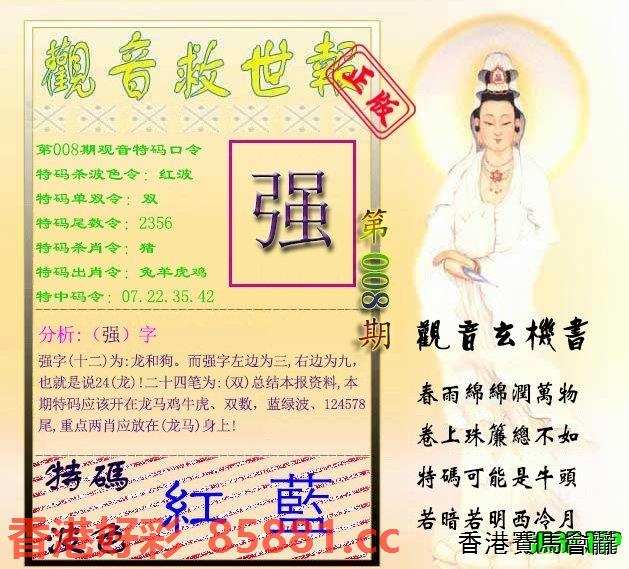 觀音救世報
正版
第008期观音特码口令
特码杀波色令：红波
特码单双令：双
特码尾数令：2356
特码杀肖令：猪
特码出肖令：兔羊虎鸡
特中码令：07.22.35.42
强
第008期
分析:（强）字
强字(十二)为:龙和狗。而强字左边为三,右边为九,
也就是说24(龙)!二十四笔为:(双)总结本报资料,本
期特码应该开在龙马鸡牛虎、双数，蓝绿波、124578
尾,重点两肖应放在(龙马)身上!
特碼
波色
紅 藍
觀音玄機書
春雨綿綿潤萬物
卷上珠簾總不如
特碼可能是牛頭
若暗若明西冷月
香港好彩 85881.cc
香港賽馬會